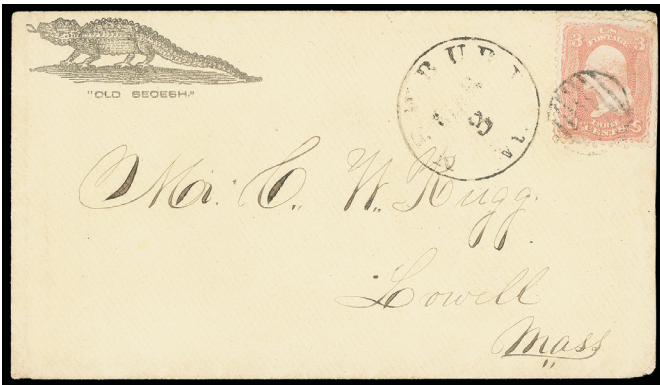 "OLD SECESH."
U.S.
3 POSTAGE 3
CENTS
Mr. C. W. Rugg.
Lowell
Mass